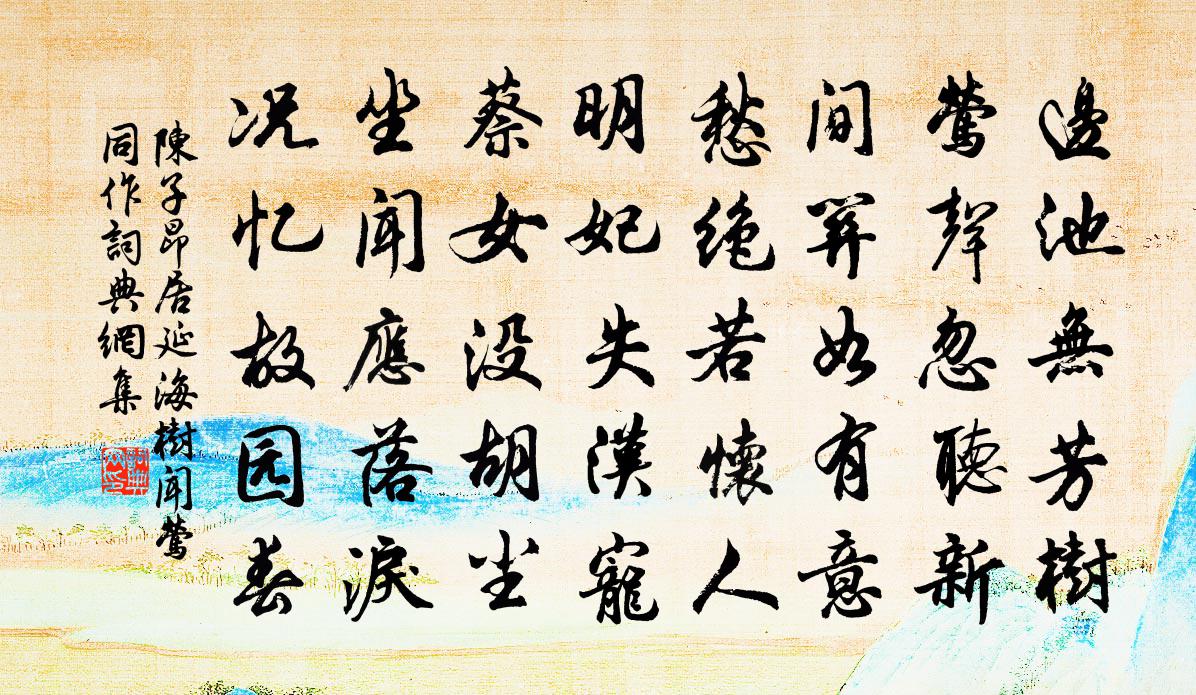 邊池無芳樹
鶯聲忽聽新
間關如有意
愁絶若懷人
明妃失漢寵
蔡女没胡尘
坐聞應落淚
况忆故园春
陳子昂居延海樹聞鶯
同作詞典網集